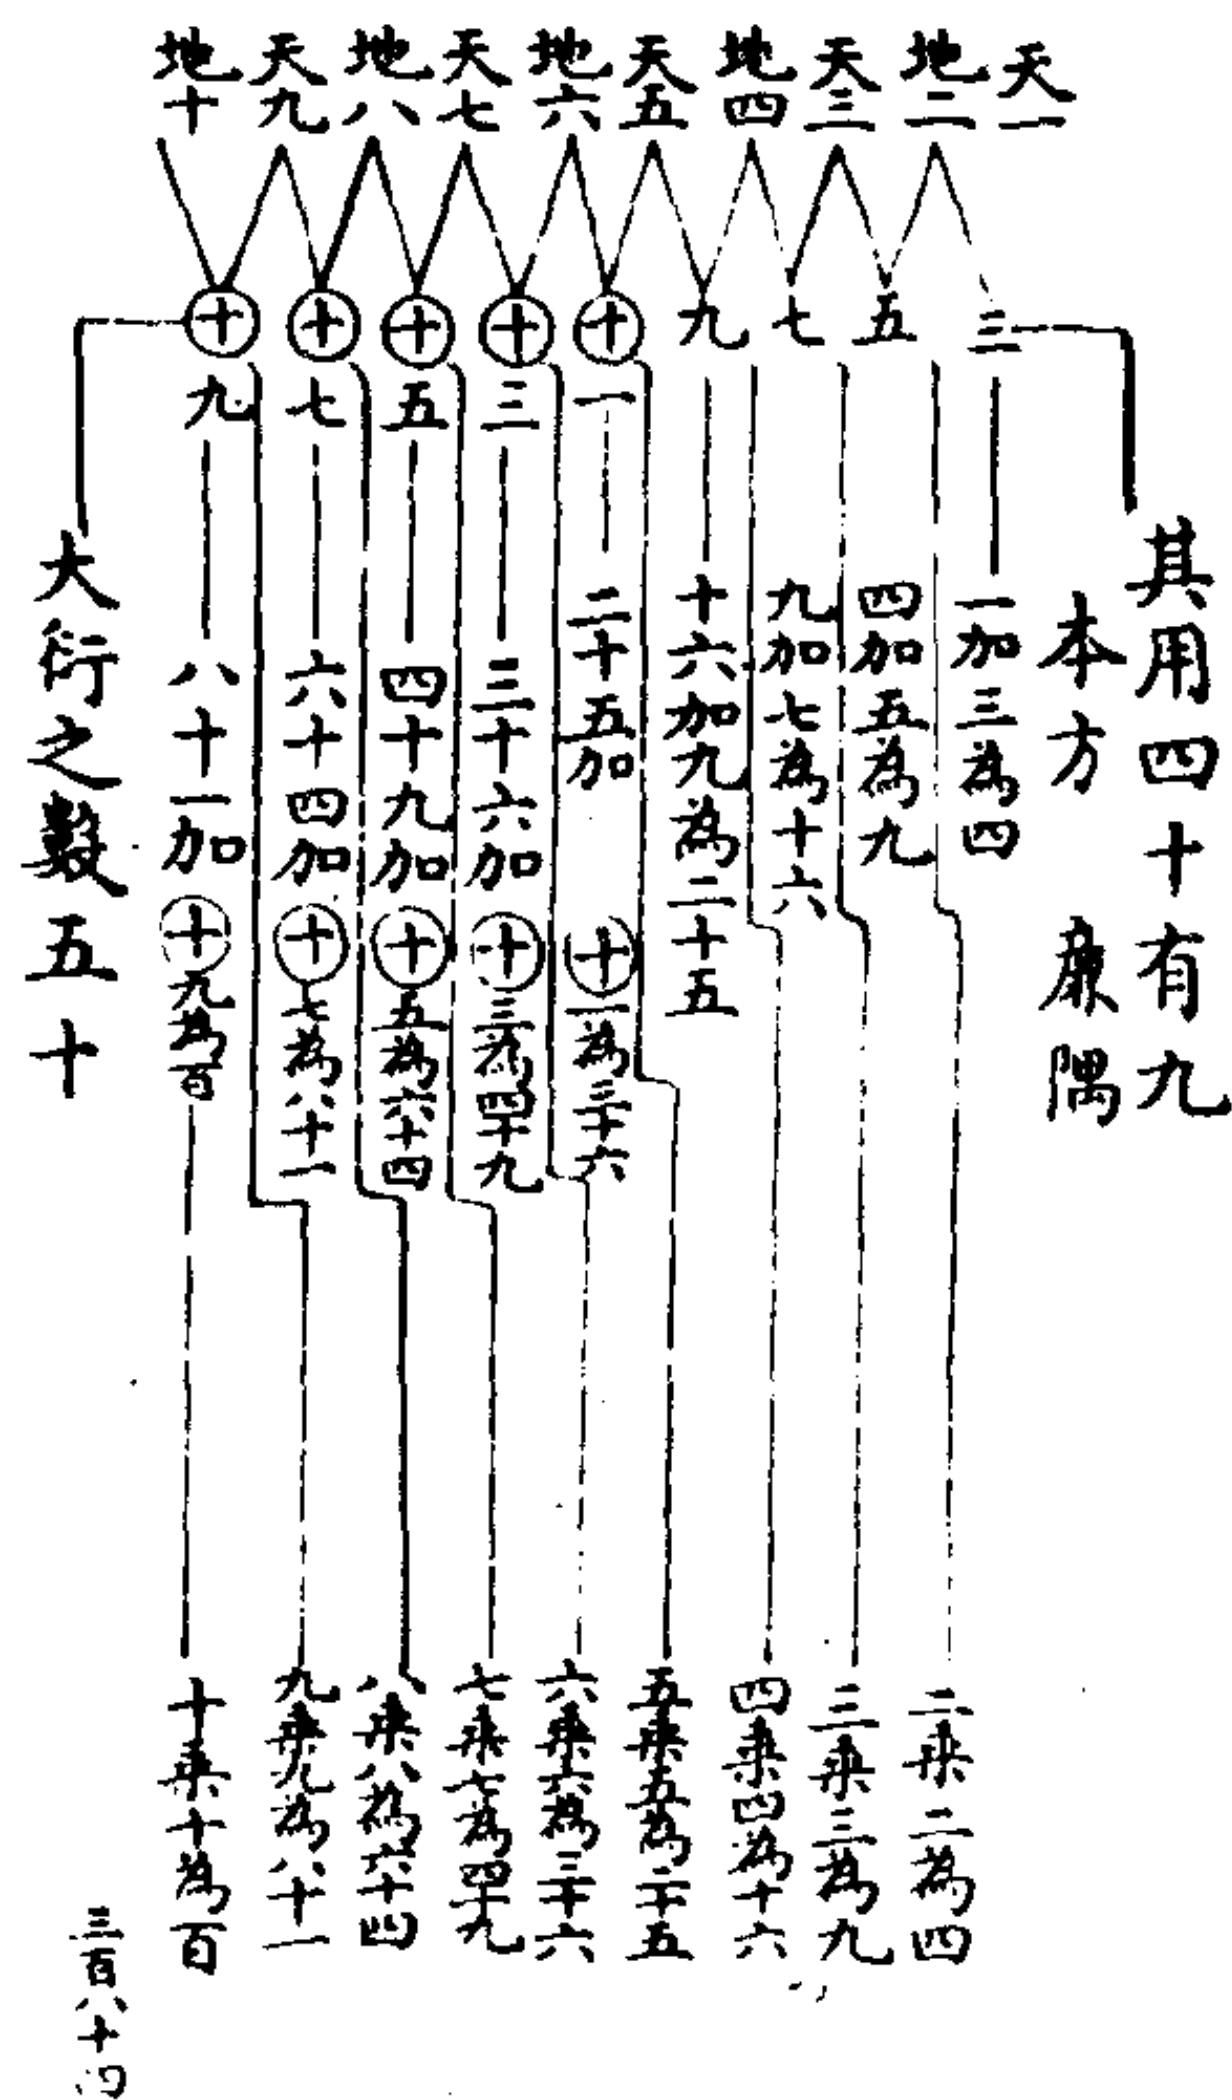 天一
地二
天三
地四
天五
地六
天七
地八
天九
地十
三
五
七
九
十一
十三
十五
十七
十九
其用四十有九
本方　廉隅
一加三為四
四加五為九
九加七為十六
十六加九為二十五
二十五加十一為三十六
三十六加十三為四十九
四十九加十五為六十四
六十四加十七為八十一
八十一加十九為百
大衍之數五十
二乘二為四
三乘三為九
四乘四為十六
五乘五為二十五
六乘六為三十六
七乘七為四十九
八乘八為六十四
九乘九為八十一
十乘十為百
三百八十四